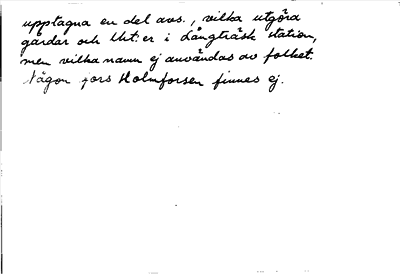 upptagna en del avs., vilka utgöra
gårdar och lht:er i Långträsk station,
men vilka namn ej användas av folket.
Någon fors Holmforsen finnes ej.